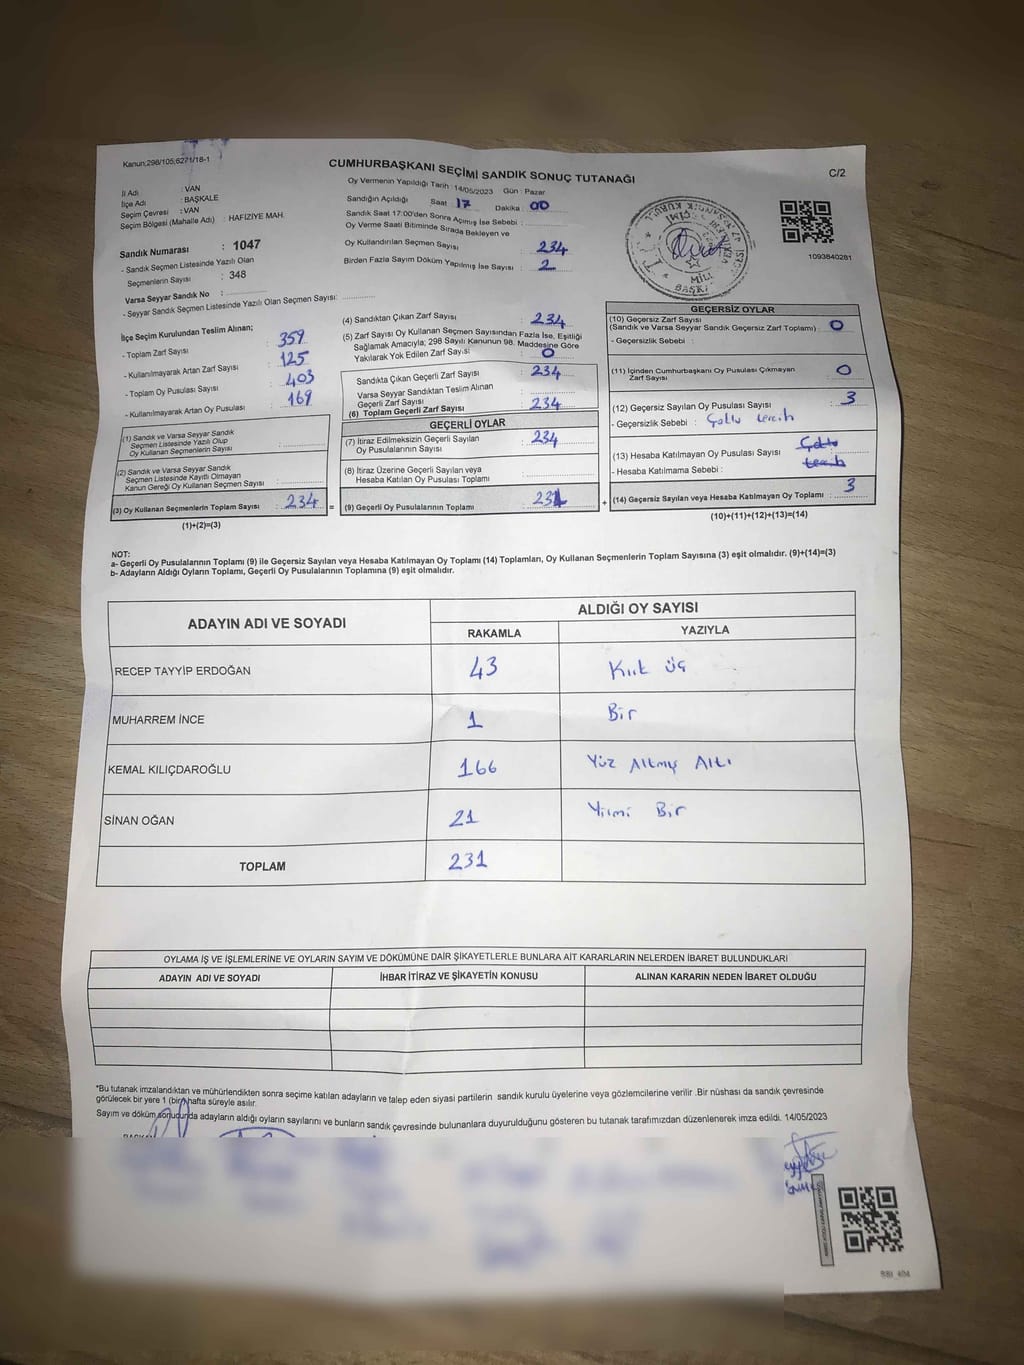 Kanun;298/105;6271/18-1
CUMHURBAŞKANI SEÇİMİ SANDIK SONUÇ TUTANAĞI
C/2
İl Adı : VAN
İlçe Adı : BAŞKALE
Seçim Çevresi : VAN
Seçim Bölgesi (Mahalle Adı) : HAFIZİYE MAH.
Sandık Numarası : 1047
- Sandık Seçmen Listesinde Yazılı Olan
Seçmenlerin Sayısı : 348
Varsa Seyyar Sandık No :
- Seyyar Sandık Seçmen Listesinde Yazılı Olan Seçmen Sayısı:
Oy Vermenin Yapıldığı Tarih : 14/05/2023 Gün : Pazar
Sandığın Açıldığı Saat : 17 Dakika : 00
Sandık Saat 17:00'den Sonra Açılmış İse Sebebi :
Oy Verme Saati Bitiminde Sırada Bekleyen ve
Oy Kullandırılan Seçmen Sayısı : 234
Birden Fazla Sayım Döküm Yapılmış İse Sayısı : 2
1093840281
İlçe Seçim Kurulundan Teslim Alınan;
- Toplam Zarf Sayısı : 359
- Kullanılmayarak Artan Zarf Sayısı : 125
- Toplam Oy Pusulası Sayısı : 403
- Kullanılmayarak Artan Oy Pusulası : 169
(1) Sandık ve Varsa Seyyar Sandık
Seçmen Listesinde Yazılı Olup
Oy Kullanan Seçmenlerin Sayısı :
(2) Sandık ve Varsa Seyyar Sandık
Seçmen Listesinde Kayıtlı Olmayan
Kanun Gereği Oy Kullanan Seçmen Sayısı :
(3) Oy Kullanan Seçmenlerin Toplam Sayısı : 234 =
(1)+(2)=(3)
(4) Sandıktan Çıkan Zarf Sayısı : 234
(5) Zarf Sayısı Oy Kullanan Seçmen Sayısından Fazla İse, Eşitliği
Sağlamak Amacıyla; 298 Sayılı Kanunun 98. Maddesine Göre
Yakılarak Yok Edilen Zarf Sayısı : 0
Sandıkta Çıkan Geçerli Zarf Sayısı : 234
Varsa Seyyar Sandıktan Teslim Alınan
Geçerli Zarf Sayısı :
(6) Toplam Geçerli Zarf Sayısı : 234
GEÇERLİ OYLAR
(7) İtiraz Edilmeksizin Geçerli Sayılan
Oy Pusulasının Sayısı : 234
(8) İtiraz Üzerine Geçerli Sayılan veya
Hesaba Katılan Oy Pusulası Toplamı :
(9) Geçerli Oy Pusulalarının Toplamı : 231 +
GEÇERSİZ OYLAR
(10) Geçersiz Zarf Sayısı
(Sandık ve Varsa Seyyar Sandık Geçersiz Zarf Toplamı) : 0
- Geçersizlik Sebebi :
(11) İçinden Cumhurbaşkanı Oy Pusulası Çıkmayan
Zarf Sayısı : 0
(12) Geçersiz Sayılan Oy Pusulası Sayısı : 3
- Geçersizlik Sebebi : Çoklu tercih
(13) Hesaba Katılmayan Oy Pusulası Sayısı : Çoklu
- Hesaba Katılmama Sebebi : tercih
(14) Geçersiz Sayılan veya Hesaba Katılmayan Oy Toplamı : 3
(10)+(11)+(12)+(13)=(14)
NOT:
a- Geçerli Oy Pusulalarının Toplamı (9) ile Geçersiz Sayılan veya Hesaba Katılmayan Oy Toplamı (14) Toplamları, Oy Kullanan Seçmenlerin Toplam Sayısına (3) eşit olmalıdır. (9)+(14)=(3)
b- Adayların Aldığı Oyların Toplamı, Geçerli Oy Pusulalarının Toplamına (9) eşit olmalıdır.
ADAYIN ADI VE SOYADI
ALDIĞI OY SAYISI
RAKAMLA YAZIYLA
RECEP TAYYİP ERDOĞAN 43 Kırk üç
MUHARREM İNCE 1 Bir
KEMAL KILIÇDAROĞLU 166 Yüz Altmış Altı
SİNAN OĞAN 21 Yirmi Bir
TOPLAM 231
OYLAMA İŞ VE İŞLEMLERİNE VE OYLARIN SAYIM VE DÖKÜMÜNE DAİR ŞİKAYETLERLE BUNLARA AİT KARARLARIN NELERDEN İBARET BULUNDUKLARI
ADAYIN ADI VE SOYADI İHBAR İTİRAZ VE ŞİKAYETİN KONUSU ALINAN KARARIN NEDEN İBARET OLDUĞU
*Bu tutanak imzalandıktan ve mühürlendikten sonra seçime katılan adayların ve talep eden siyasi partilerin sandık kurulu üyelerine veya gözlemcilerine verilir .Bir nüshası da sandık çevresinde
görülecek bir yere 1 (bir) hafta süreyle asılır.
Sayım ve döküm sonucunda adayların aldığı oyların sayılarını ve bunların sandık çevresinde bulunanlara duyurulduğunu gösteren bu tutanak tarafımızdan düzenlenerek imza edildi. 14/05/2023